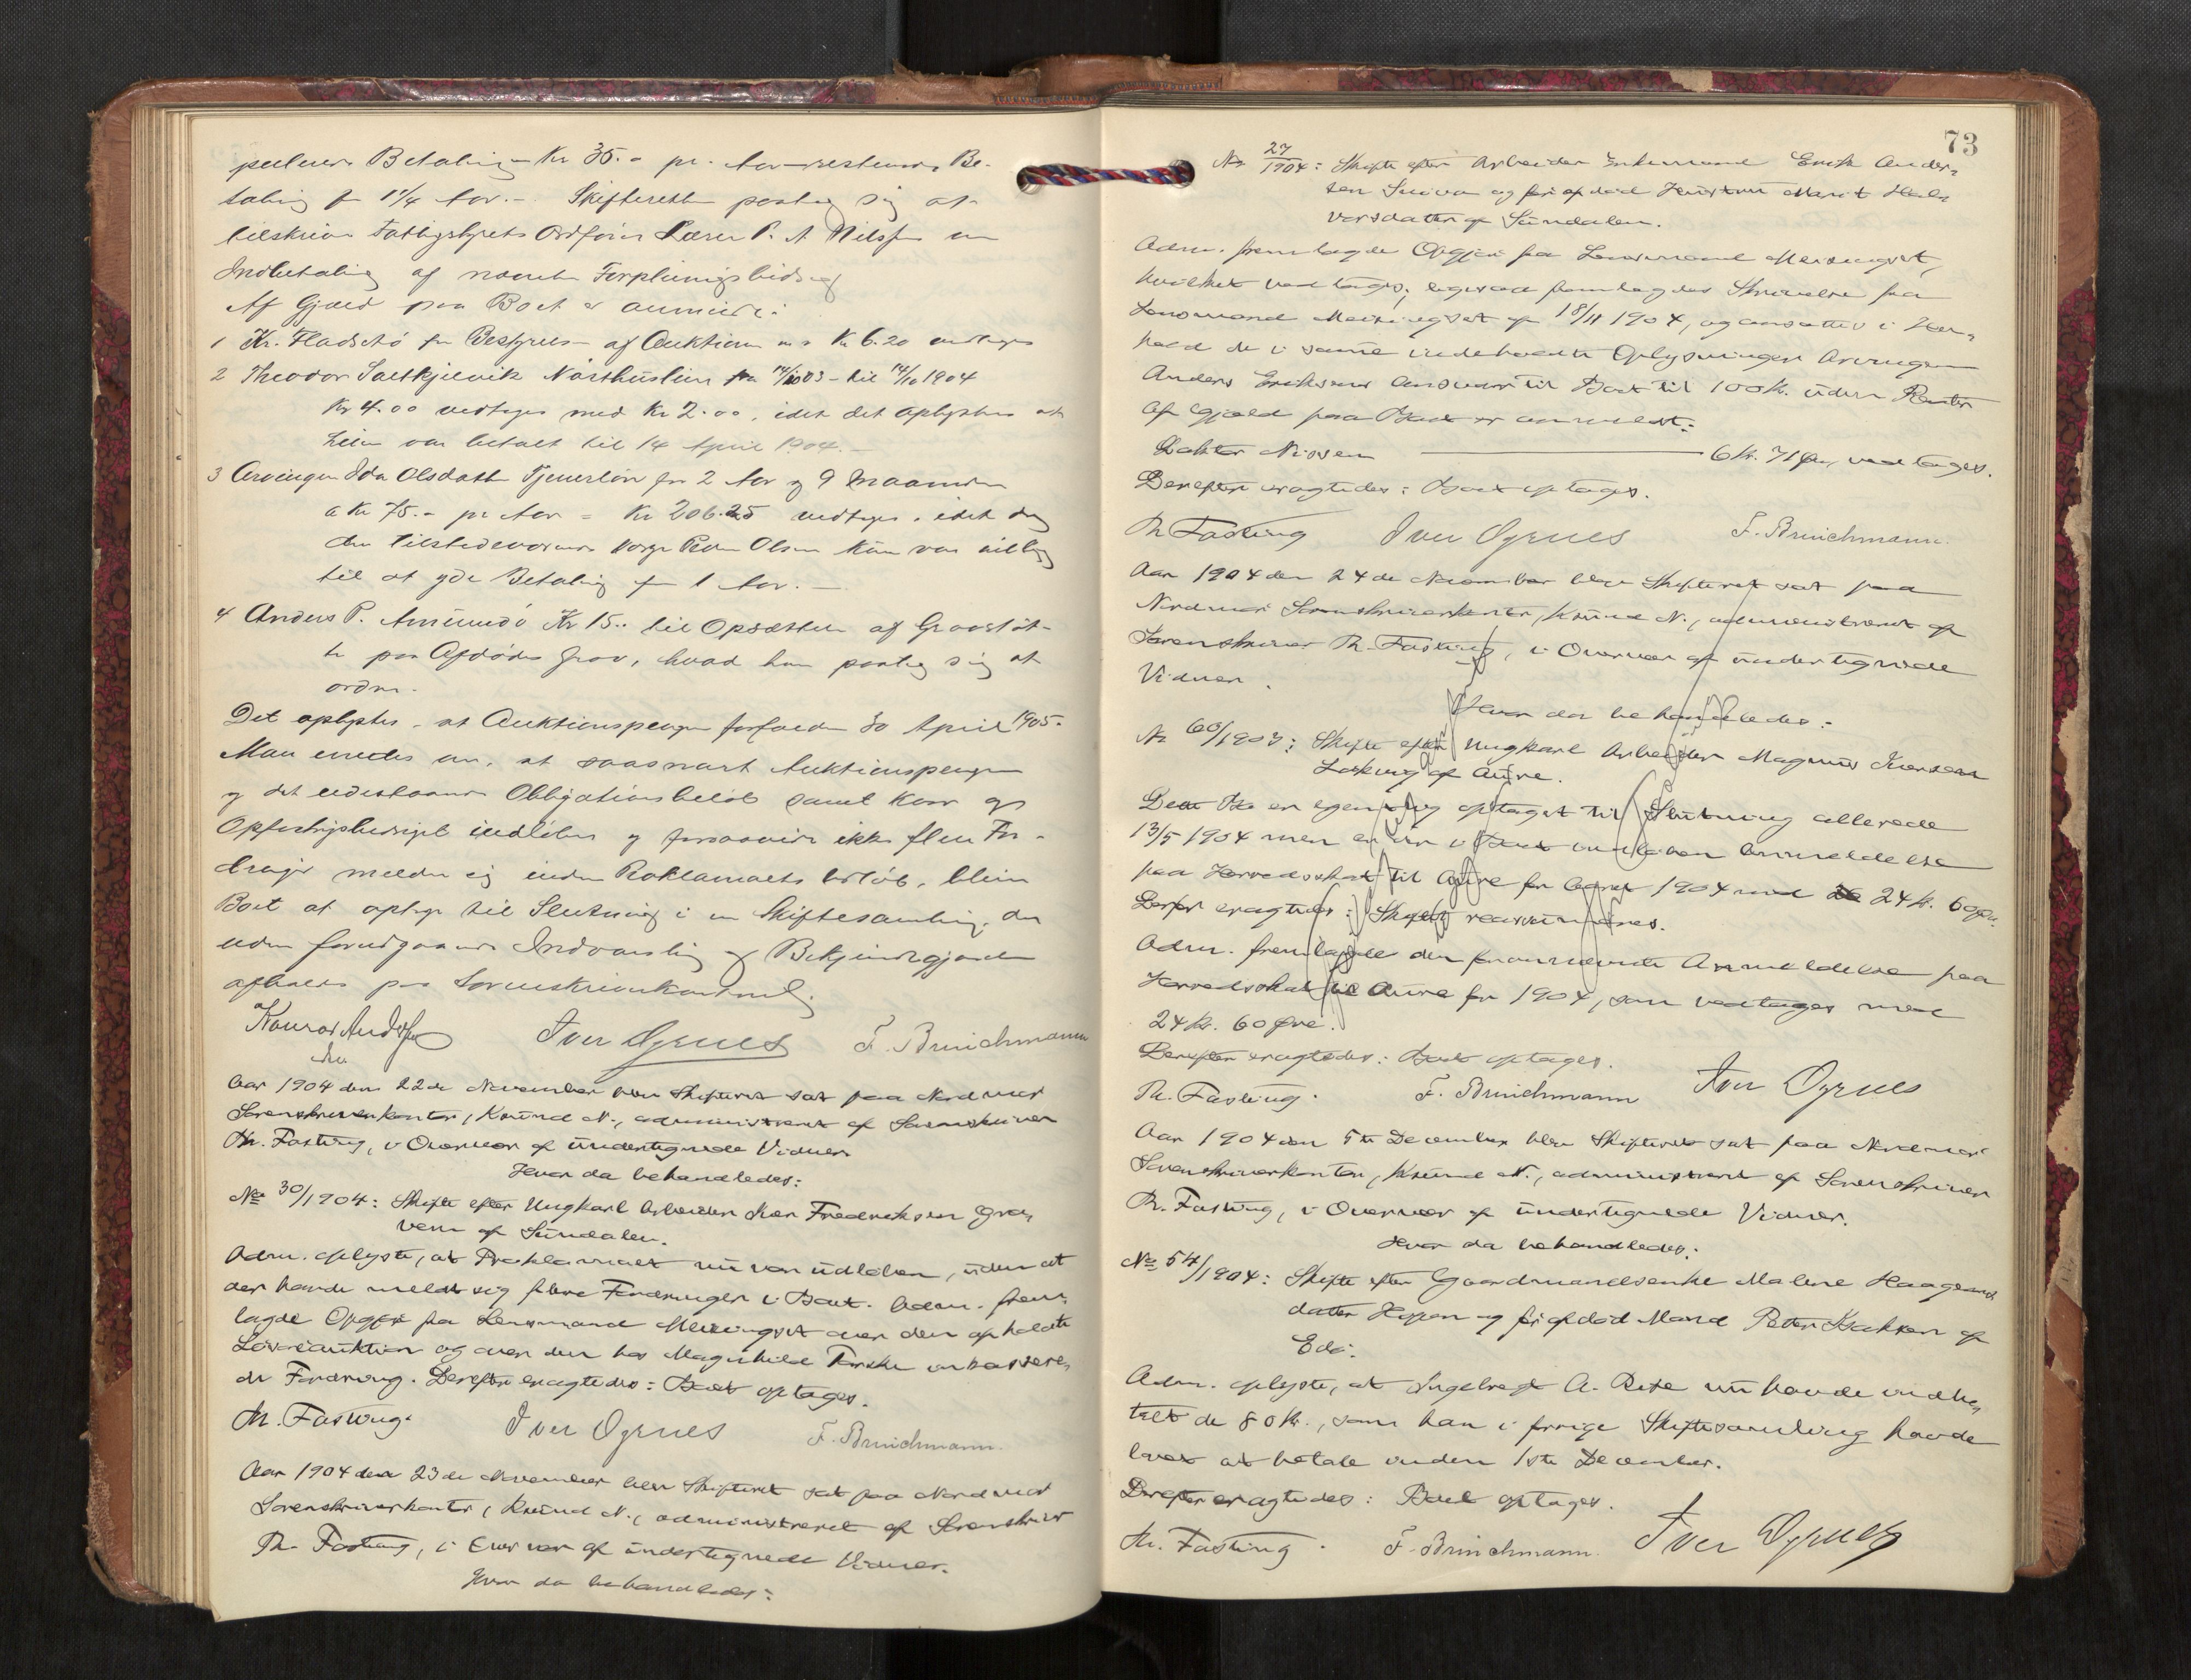 Betaling Kr 35.- pr. Aar resterende Be-
taling f 1 1/4 Aar.- Skifteretten paatog sig at
tilskrive Fattigstyrets Ordfører Lærer P. A. Nilssen om
Indbetaling af nævnte Forpleiningsbidrag
Af Gjæld paa Boet er anmeldt:
1 Kr. Fladsetø for Bestyrelse af Auktion m.v. Kr 6.20 vedtages
2 Theodor Saltkjelvik Nausthusleie fra 14/10 03 - til 14/10 1904
Kr 4.00 vedtages med Kr 2.00, idet det oplystes at
Leien var betalt til 14 April 1904.-
3 Arvingen Ida Olsdatter Tjenerløn for 2 Aar og 9 Maaneder
a Kr 75.- pr Aar = Kr 206.25 vedtages, idet dog
den tilstedeværende Værge Peder Olsen kun var villig
til at yde Betaling for 1 Aar.-
4 Anders P. Amundø Kr 15.. til Opsættelse af Gravstøt-
te paa Afdødes Grav, hvad han paatog sig at
ordne.
Det oplystes, at Auktionspengene forfalder 30 April 1905.
Man enedes om, at saasnart Auktionspengene
og det udestaaende Obligationsbeløb samt Korn og
Opfostringsbidraget indløber og forsaavidt ikke flere For-
dringer melder sig inden Proklamaets Udløb, bliver
Boet at optage til Slutning i en Skiftesamling, der
uden forudgaaende Indvarsling og Bekjendtgjørelse
afholdes paa Sorenskriverkontoret.
Iver Ogrues F. Brinchmann
Aar 1904 den 22de November blev Skifteret sat paa Nordmør
Sorenskriverkontor, Krsund N., administreret af Sorenskriver
Th. Fasting, i Overvær af undertegnede Vidner.
Hvor da behandledes:
No 30/1904: Skifte efter Ungkarl Arbeider Iver Fredriksen Gra-
vem af Sundalen.
Adm. oplyste, at Proklamaet nu var udløben, uden at
der havde meldt sig flere Fordringer i Boet. Adm. frem-
lagde Opgjør fra Lensmand Meisingset over den afholdte
Løsøreauktion og over den hos Magnhild Furske inkassere-
de Fordring. Derefter eragtedes: Boet optages.
Th. Fasting. Iver Ogrues F. Brinchmann.
Aar 1904 den 23de November blev Skifteret sat paa Nordmør
Sorenskriverkontor, Krsund N., administreret af Sorenskriver
Th. Fasting, i Overvær af undertegnede Vidner.
Hvor da behandledes:
73
No 27/1904: Skifte efter Arbeider Enkemand Erik Ander-
sen og før afdød Hustru Marit Hal-
vorsdatter af Sundalen.
Adm. fremlagde Opgjør fra Lensmand Meisingset,
hvilket vedtages; ligesaa fremlagdes Skrivelse fra
Lensmand Meisingset af 18/11 1904, og ansattes i Hen-
hold de i samme indeholdte Oplysninger Arvingen
Anders Eriksens Ansvar til Boet til 100 Kr. uden Renter
Af Gjæld paa Boet er anmeldt:
Doktor Nissen 6 Kr. 71 Øre, vedtages.
Derefter eragtedes: Boet optages.
Th Fasting Iver Ogrues F. Brinchmann.
Aar 1904 den 24de November blev Skifteret sat paa
Nordmør Sorenskriverkontor, Krsund N., administreret af
Sorenskriver Th. Fasting, i Overvær af undertegnede
Vidner.
Hvor da behandledes:
No 60/1903: Skifte efter Ungkarl Arbeider Magnus Iversen
af Aure.
Dette Bo er egentlig optaget til Slutning allerede
13/5 1904 men er der i Boet indløben Anmeldelse
paa Herredsskat til Aure for Aaret 1904 med 24 Kr. 60 Øre.
Derfor eragtedes: Skiftet reassumeres.
Adm. fremlagde den fornævnte Anmeldelse paa
Herredsskat til Aure for 1904, som vedtages med
24 Kr. 60 Øre.
Derefter eragtedes: Boet optages.
Th. Fasting. F. Brinchmann Iver Ogrues
Aar 1904 den 5te December blev Skifteret sat paa Nordmør
Sorenskriverkontor, Krsund N., administreret af Sorenskriver
Th. Fasting, i Overvær af undertegnede Vidner.
Hvor da behandledes:
No 54/1904: Skifte efter Gaardmandsenke Malene Haagens-
datter og før afdød Mand Peter Isaksen af
Edø.
Adm. oplyste, at Ingebregt A. Rese nu havde indbe-
talt de 80 Kr., som han i forrige Skiftesamling havde
lovet at betale inden 1ste December.
Derefter eragtedes: Boet optages.
Th. Fasting. F. Brinchmann. Iver Ogrues